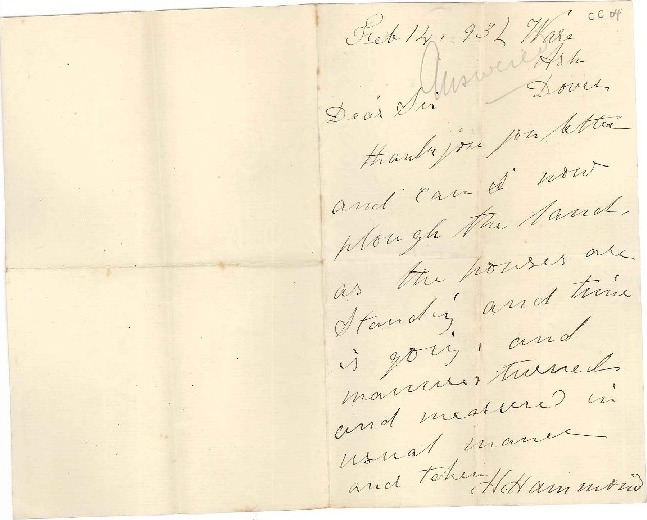 CC 04
Feb 14. 93 Ware
Ash
Dover
Answered
Dear Sir
thank you for letter
and can I now
plough the land,
as the horses are
standing and time
is going, and
manures turned
and measured in
usual manner
and taken
H Hammond